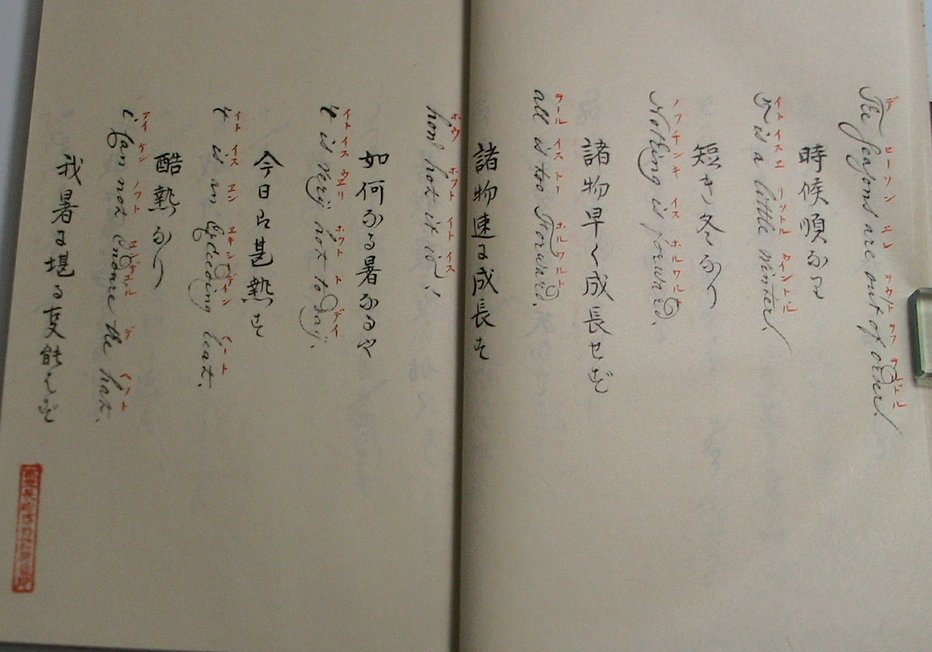 デ セーソン エレ アウト ヲフ ヲルドル
The Seasons are out of order.
時候順ならす
イト イス エ リットル ウイントル
It is a little winter.
短き冬なり
ノフチンキ イス ホルワルト
Nothing is forward.
諸物早く成長せず
ヲール イス トー ホルワルト
all is too Forward.
諸物速に成長す
ホウ ホット イト イス
how hot it is!
如何なる暑なるや
イト イス ウエリ ホット ト デイ
it is very hot to day.
今日は甚熱す
イト イス エン ヘート
it is an Exceeding heat.
酷熱なり
アイ ケン ノット デ ヘット
i Can not Endure the heat.
我暑に堪る事能はず